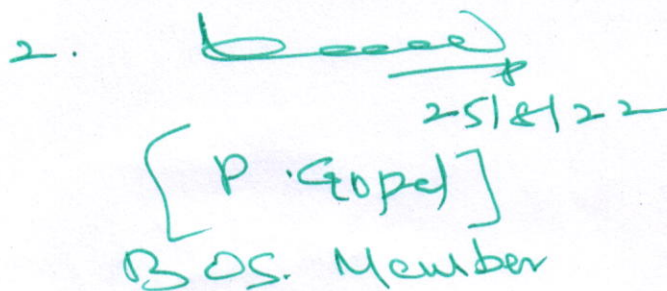 2.
25/8/22
[P. Gopal]
BOS. Member